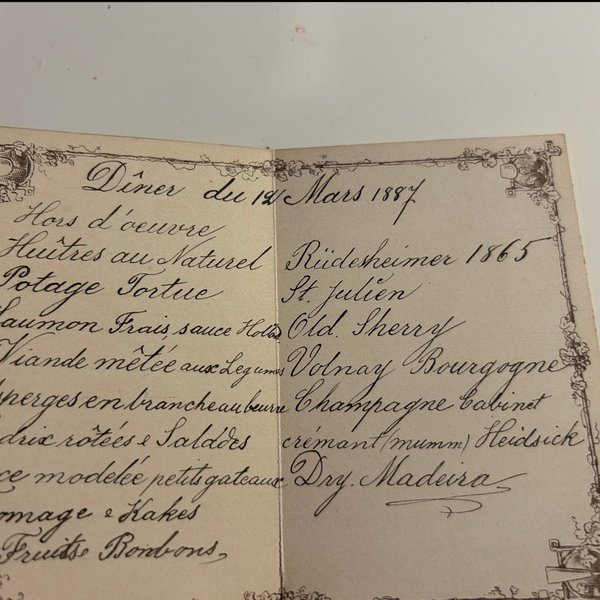 Dîner du 12 Mars 1887
Hors d'oeuvre
Huîtres au Naturel
Potage Tortue
aumon Frais, sauce Holla
Viande mêtée aux Legumes
sperges en branche au beurre
drix rôtées e Salades
ce modelée petits gateaux
omage e Kakes
Fruits e Bonbons
Rüdesheimer 1865
St. Julien
Old. Sherry
Volnay Bourgogne
Champagne Cabinet
crémant (mumm) Heidsick
Dry. Madeira